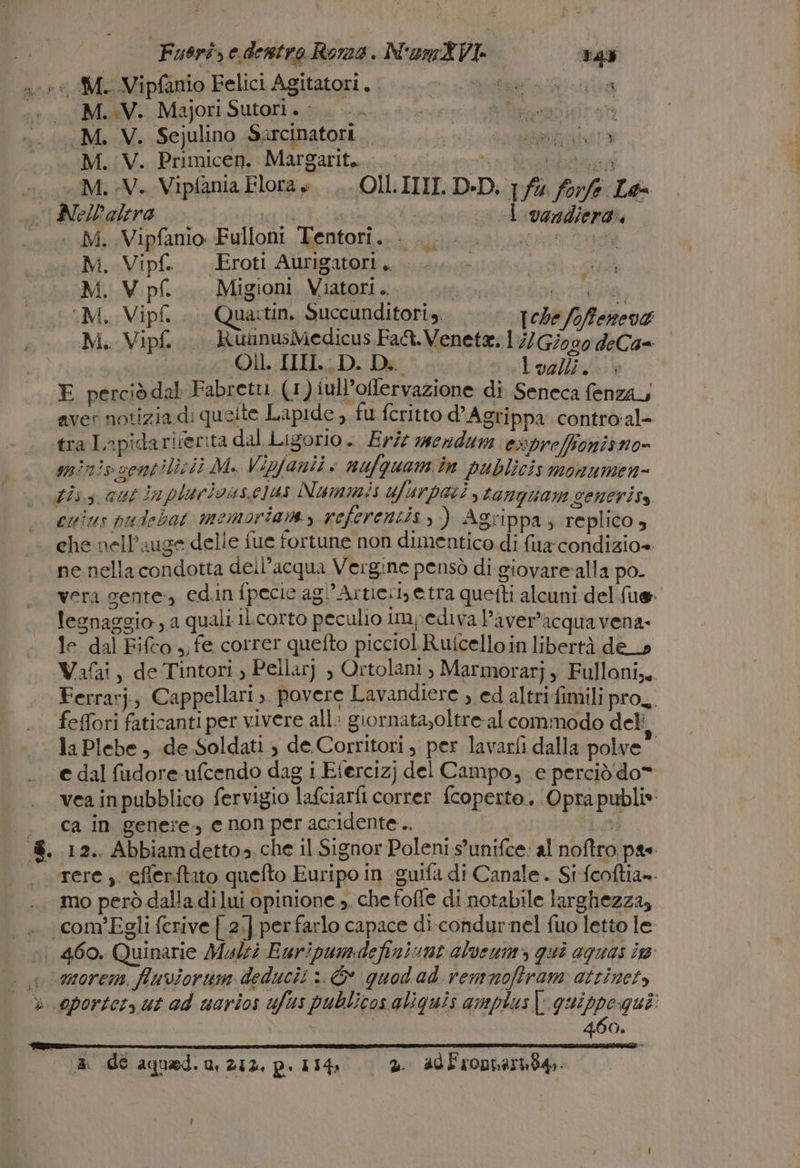 Fuori, e dentro Roma. Num XVI. 143
M. Vipſanio Felici Agitatori.
M. V. Majori Sutori.
M. V. Sejulino Sarcinatori
M. V. Primicen. Margarit.
M. V. Vipſania Flora. Oll. IIII. D.D. 1 fu forſe La-
Nell'altra l vandiera.
M. Vipſanio Fulloni Tentori.
M. Vipſ. Eroti Aurigatori.
M. Vipſ. Migioni Viatori.
M. Vipſ. Quactin. Succunditori, 1 che ſoſteneva
M. Vipſ. Ruunus Medicus Fact. Venetæ. l il Giogo de Ca-
Oll. IIII. D. D. l valli.
E perciò dal Fabretti (1) ſull'oſſervazione di Seneca ſenza
aver notizia di queſte Lapide, fu ſcritto d'Agrippa contro al-
tra Lapida riferita dal Ligorio. Erit mendum expreſſionis no-
minis gentilitii M. Vipſanii. nuſquam in publicis monumen-
tis, aut in pluribus ejus Nummis uſurpati, tanquam generis,
cujus pudebat memoriam, referentis,) Agrippa, replico,
che nell'auge delle ſue fortune non dimentico di ſua condizio-
ne nella condotta dell'acqua Vergine pensò di giovare alla po-
vera gente, ed in ſpecie agl'Artieri, e tra queſti alcuni del ſuo
legnaggio, a quali il corto peculio impediva l'aver'acqua vena-
le dal Fiſco, fe correr queſto picciol Ruſcello in libertà de
Vaſai, de Tintori, Pellarj, Ortolani, Marmorarj, Fulloni,
Ferrarj, Cappellari, povere Lavandiere, ed altri ſimili pro-
feſſori faticanti per vivere alla giornata, oltre al commodo del-
la Plebe, de Soldati, de Corritori, per lavarſi dalla polve
e dal ſudore uſcendo dagli Eſercizj del Campo, e perciò do-
vea in pubblico ſervigio laſciarſi correr ſcoperto. Opra publi-
ca in genere, e non per accidente.
§. 12. Abbiam detto, che il Signor Poleni s'uniſce al noſtro pa-
rere, eſſer ſtato queſto Euripo in guiſa di Canale. Si ſcoſtia-
mo però dalla di lui opinione, che foſſe di notabile larghezza,
com'Egli ſcrive [2] per farlo capace di condur nel ſuo letto le
460. Quinarie Multi Euripum definiunt alveum, qui aquas in
morem fluviorum deducit: & quod ad rem noſtram attinet,
oportet, ut ad varios uſus publicos aliquis amplus [quippe qui
460.
1 de aquæd. n. 212. p. 114, 2. ad Frontart. 84.